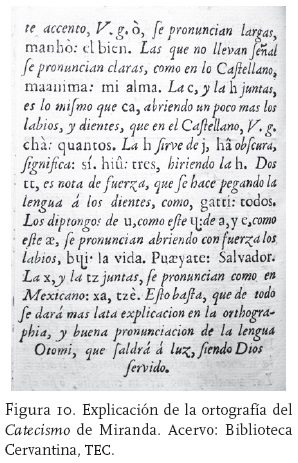 te accento, V. g. ò, se pronuncian largas,
manhò: el bien. Las que no llevan señal
se pronuncian claras, como en lo Castellano,
maanima: mi alma. La c, y la h juntas,
es lo mismo que ca, abriendo un poco mas los
labios, y dientes, que en el Castellano, V. g.
chà: quantos. La h sirve de j, hâ obscura,
significa: sí. hiû: tres, hiriendo la h. Dos
tt, es nota de fuerza, que se hace pegando la
lengua á los dientes, como, gatti: todos.
Los diptongos de u, como este ɥ: de a, y e, como
este æ, se pronuncian abriendo con fuerza los
labios, bɥi: la vida. Pɥæyate: Salvador.
La x, y la tz juntas, se pronuncian como en
Mexicano: xa, tzè. Esto basta, que de todo
se dará mas lata explicacion en la orthogra-
phia, y buena pronunciacion de la lengua
Otomi, que saldrá á luz, siendo Dios
servido.
Figura 10. Explicación de la ortografía del
Catecismo de Miranda. Acervo: Biblioteca
Cervantina, TEC.